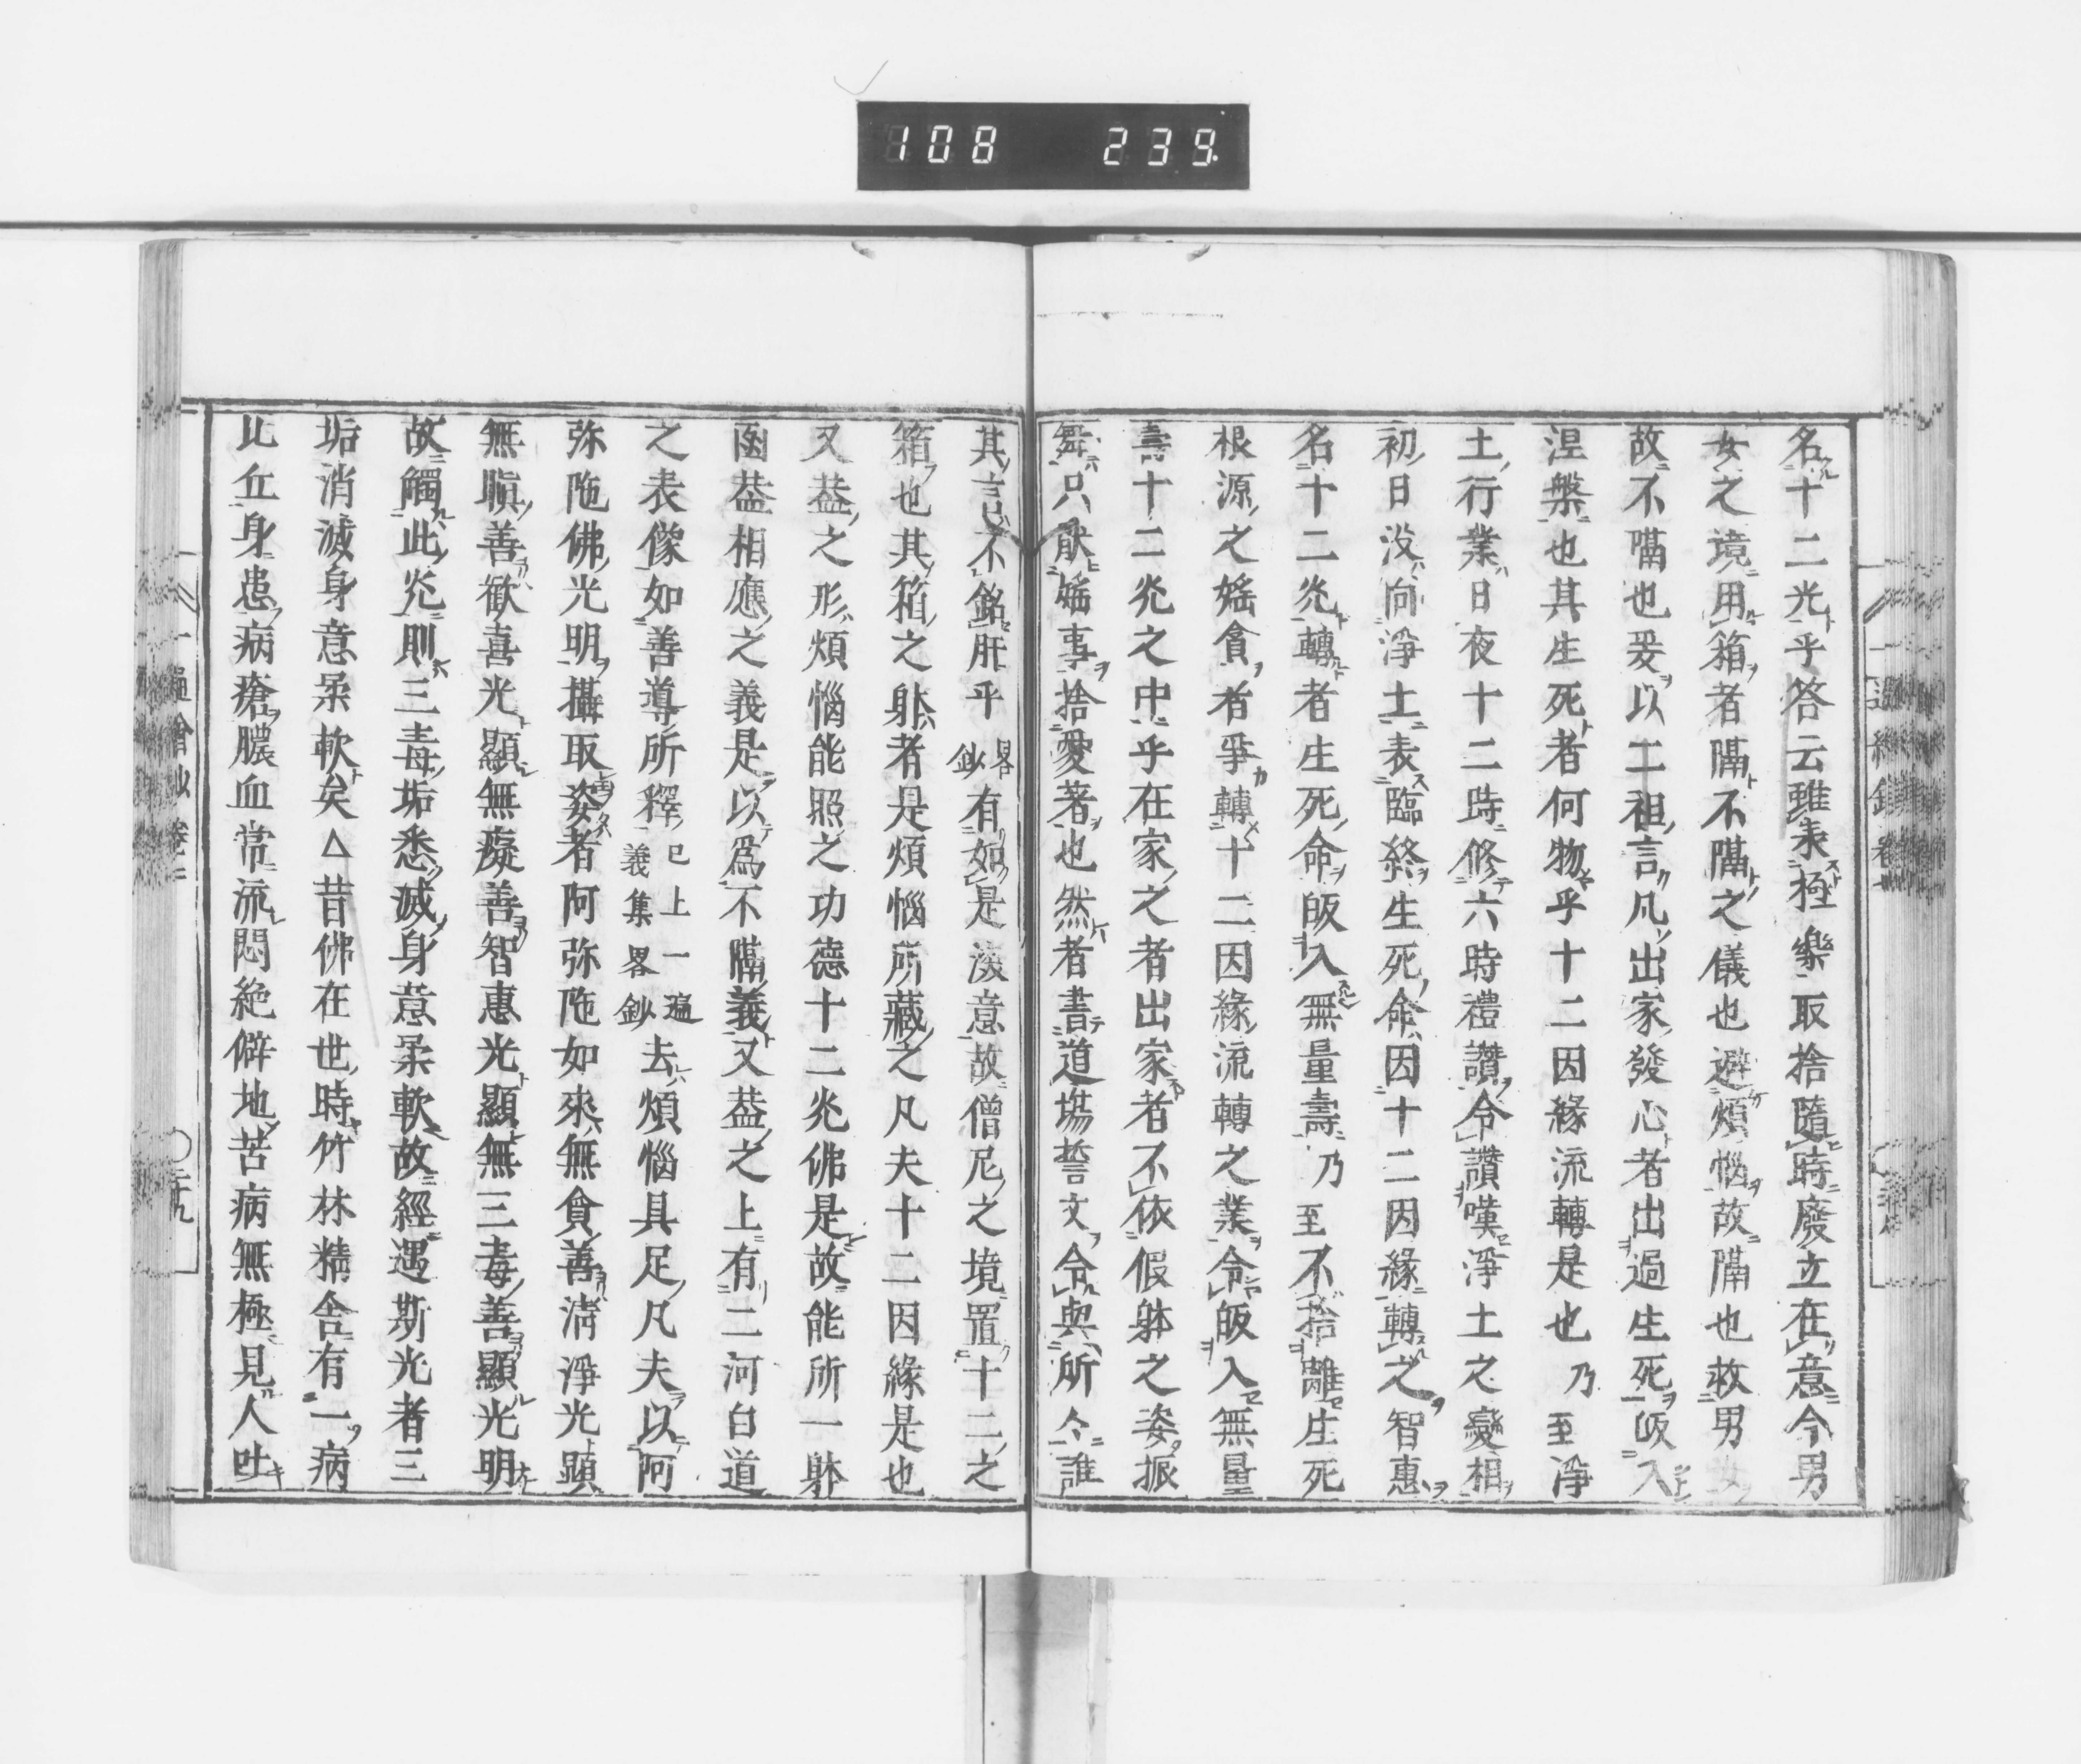 108 239
名十二光乎答云雖未極樂取捨隨時廢立在意今男
女之境用箱者隔不隔之儀也避煩惱故隔也救男女
故不隔也爰以二祖言凡出家發心者出過生死皈入
涅槃也其生死者何物乎十二因緣流轉是也乃至淨
土行業日夜十二時修六時禮讚令讚嘆淨土之變相
初日没向淨土表臨終生死命因十二因緣轉之智惠
名十二光轉者生死命皈入無量壽乃至不捨離生死
根源之婬貪者爭轉十二因緣流轉之業令皈入無量
壽十二光之中乎在家之者出家者不依假躰之姿振
舞只猒婬事捨愛著也然者書道塲誓文令與所今誰
其言不銘肝乎畧鈔有如是深意故僧尼之境置十二之
箱也其箱之躰者是煩惱所藏之凡夫十二因緣是也
又葢之形煩惱能照之功德十二光佛是故能所一躰
凾葢相應之義是以爲不隔義又葢之上有二河白道
之表像如善導所釋已上一遍義集畧鈔去煩惱具足凡夫以阿
弥陁佛光明攝取姿者阿弥陁如來無貪善淸淨光顯
無瞋善歡喜光顯無癡善智惠光顯無三毒善顯光明
故觸此光則三毒垢悉滅身意柔軟故經遇斯光者三
垢消滅身意柔軟矣△昔佛在世時竹林精舎有一病
比丘身患病瘡膿血常流悶絶僻地苦病無極見人吐